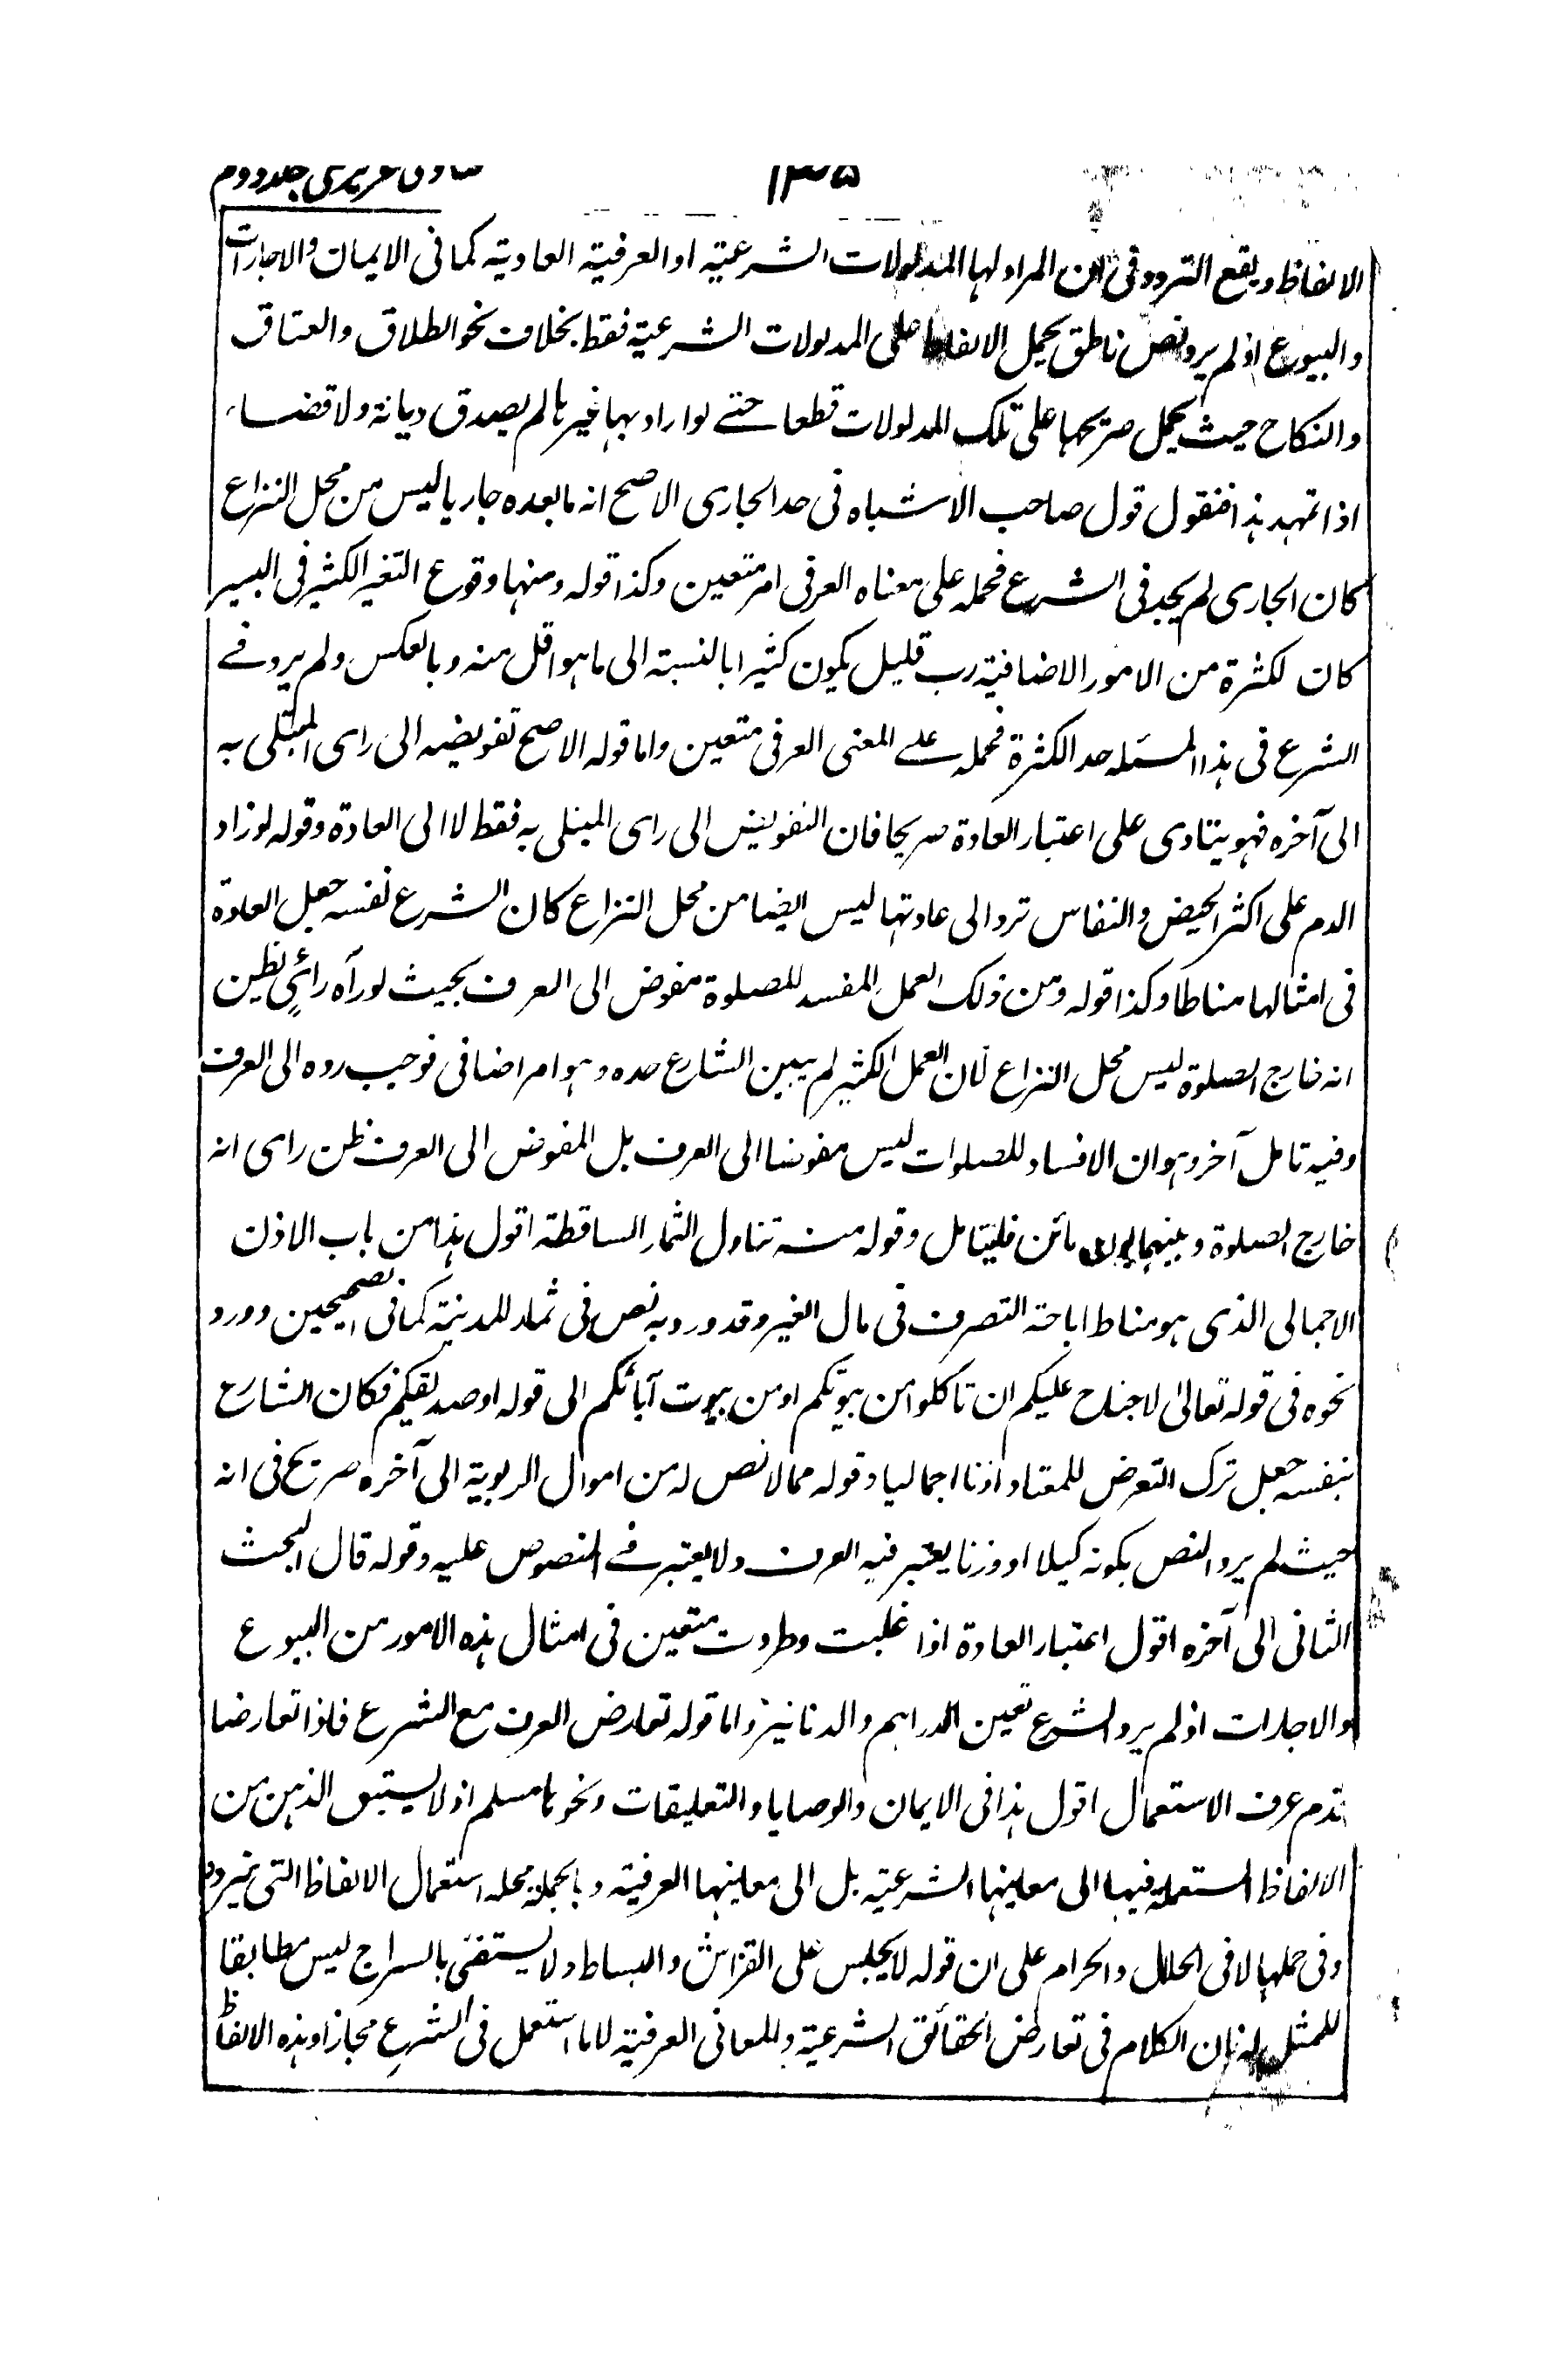 ۱۳۵ فتاوی عزیزی جلد دوم
الالفاظ ویقع التردد فی ان المراد لہا المدلولات الشرعیۃ او العرفیۃ العادیۃ کما فی الایمان والاجارات
والبیوع اذ لم یرد نص ناطق یحمل الالفاظ علی المدلولات الشرعیۃ فقط بخلاف نحو الطلاق والعتاق
والنکاح حیث یحمل صریحہا علی تلک المدلولات قطعا حتے لو اراد بہا غیرہا لم یصدق دیانۃ ولا قضاء
اذا تمہد ہذا فنقول قول صاحب الاشباہ فی حد الجاری الاصح انہ ما بعدہ جاریا لیس من محل النزاع
کان الجاری لم یحد فی الشرع فحملہ علی معناہ العرفی امر متعین وکذا قولہ ومنہا وقوع التغیر الکثیر فی البیر
کان لکثرۃ من الامور الاضافیۃ رب قلیل یکون کثیرا بالنسبۃ الی ما ہو اقل منہ وبالعکس ولم یرد فے
الشرع فی ہذا المسئلہ حد الکثرۃ فحملہ علے المعنی العرفی متعین واما قولہ الاصح تفویضہ الی رای المبتلی بہ
الی آخرہ فہو یتادی علی اعتبار العادۃ صریحا فان التفویض الی رای المبتلی بہ فقط لا الی العادۃ وقولہ لو زاد
الدم علی اکثر الحیض والنفاس ترد الی عادتہا لیس ایضا من محل النزاع کان الشرع نفسہ جعل العادۃ
فی امثالہا مناطا وکذا قولہ ومن ذلک العمل المفسد للصلوۃ مفوض الی العرف بحیث لو رآہ رائی یظن
انہ خارج الصلوۃ لیس محل النزاع لان العمل الکثیر لم یبین الشارع حدہ وہو امر اضافی فوجب ردہ الی العرف
وفیہ تامل آخر وہو ان الافساد للصلوات لیس مفوضا الی العرف بل المفوض الی العرف ظن رای انہ
خارج الصلوۃ وبینہما بون بائن فلیتامل وقولہ منہ تناول الثمار الساقطۃ اقول ہذا من باب الاذن
الاجمالی الذی ہو مناط اباحۃ التصرف فی مال الغیر وقد ورد بہ نص فی ثمار المدینۃ کما فی الصحیحین وورد
نحوہ فی قولہ تعالیٰ لا جناح علیکم ان تاکلوا من بیوتکم او من بیوت آبائکم الی قولہ او صدیقکم فکان الشارع
بنفسہ جعل ترک التعرض للمعتاد اذنا اجمالیا وقولہ مما لا نص لہ من اموال الربویۃ الی آخرہ صریح فی انہ
حیث لم یرد النص بکونہ کیلا او وزنا یعتبر فیہ العرف ولا یعتبر فے المنصوص علیہ وقولہ قال البحث
الثانی الی آخرہ اقول اعتبار العادۃ اذا غلبت وطردت متعین فی امثال ہذہ الامور من البیوع
والاجارات اذ لم یرد الشرع تعین الدراہم والدنانیر واما قولہ تعارض العرف مع الشرع فاذا تعارضا
قدم عرف الاستعمال اقول ہذا فی الایمان والوصایا والتعلیقات ونحوہا مسلم اذ لا یستبق الذہن من
الالفاظ المستعملۃ فیہا الی معانیہا الشرعیۃ بل الی معانیہا العرفیۃ وبالجملۃ محلہ استعمال الالفاظ التی
وفی حملہا لا فی الحلال والحرام علی ان قولہ لا یجلس علی الفراش والبساط ولا یستضئ بالسراج لیس مطابقا
للمثل لہ فان الکلام فی تعارض الحقائق الشرعیۃ والمعانی العرفیۃ لا ما استعمل فی الشرع مجازا وہذہ الالفاظ